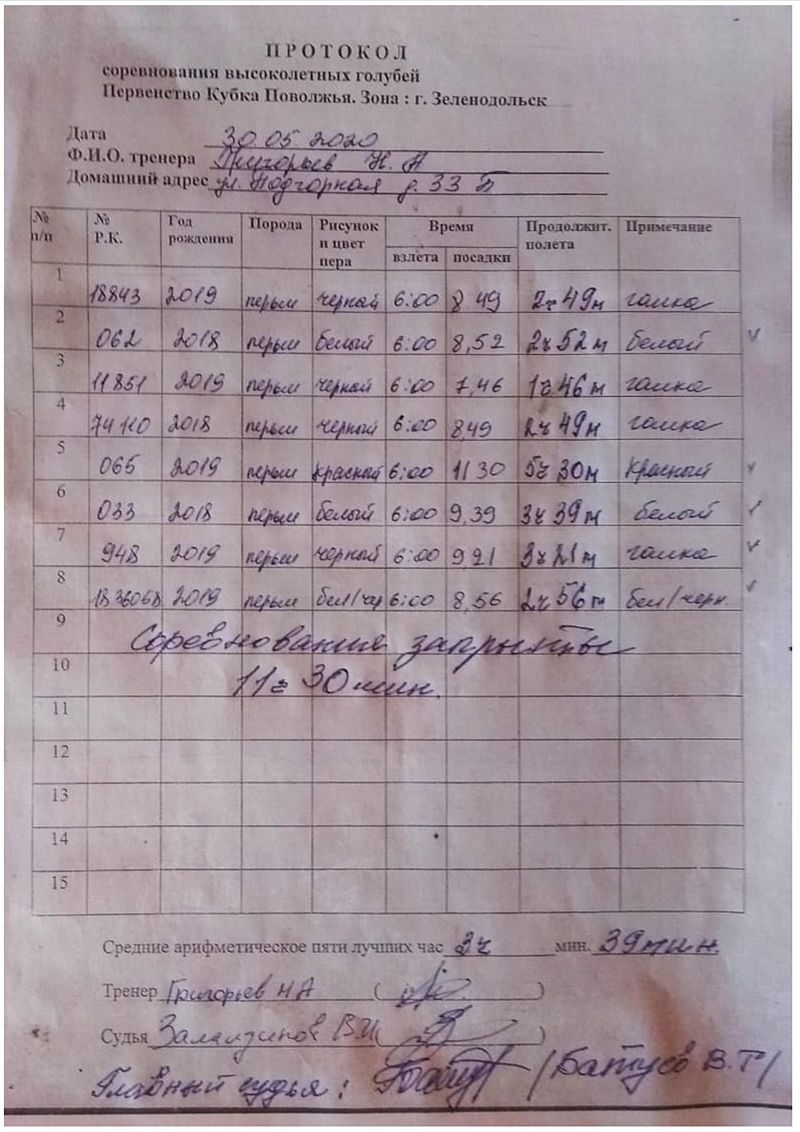 ПРОТОКОЛ
соревнования высоколетных голубей
Первенство Кубка Поволжья. Зона : г. Зеленодольск
Дата 30.05.2020
Ф.И.О. тренера Григорьев Н. А
Домашний адрес ул. Подгорная д. 33 Б
№ п/п № Р.К. Год рождения Порода Рисунок и цвет пера Время взлёта посадки Продолжит. полета Примечание
1 18843 2019 перым черный 6:00 8 49 2ч 49м галка
2 062 2018 перым белый 6:00 8,52 2ч 52м белый
3 11851 2019 перым черный 6:00 7,46 1ч 46м галка
4 74110 2018 перым черный 6:00 8,49 2ч 49м галка
5 065 2019 перым красный 6:00 11 30 5ч 30м красный
6 033 2018 перым белый 6:00 9,39 3ч 39м белый
7 948 2019 перым черный 6:00 9,21 3ч 21м галка
8 1836068 2019 перым бел/чер 6:00 8,56 2ч 56м бел/черн.
9 Соревнования закрыты
10 11ч 30мин.
11
12
13
14
15
Средние арифметическое пяти лучших час 3ч мин. 39мин.
Тренер Григорьев НА ( )
Судья В.И ( )
Главный судья: /Батуев В.Г/